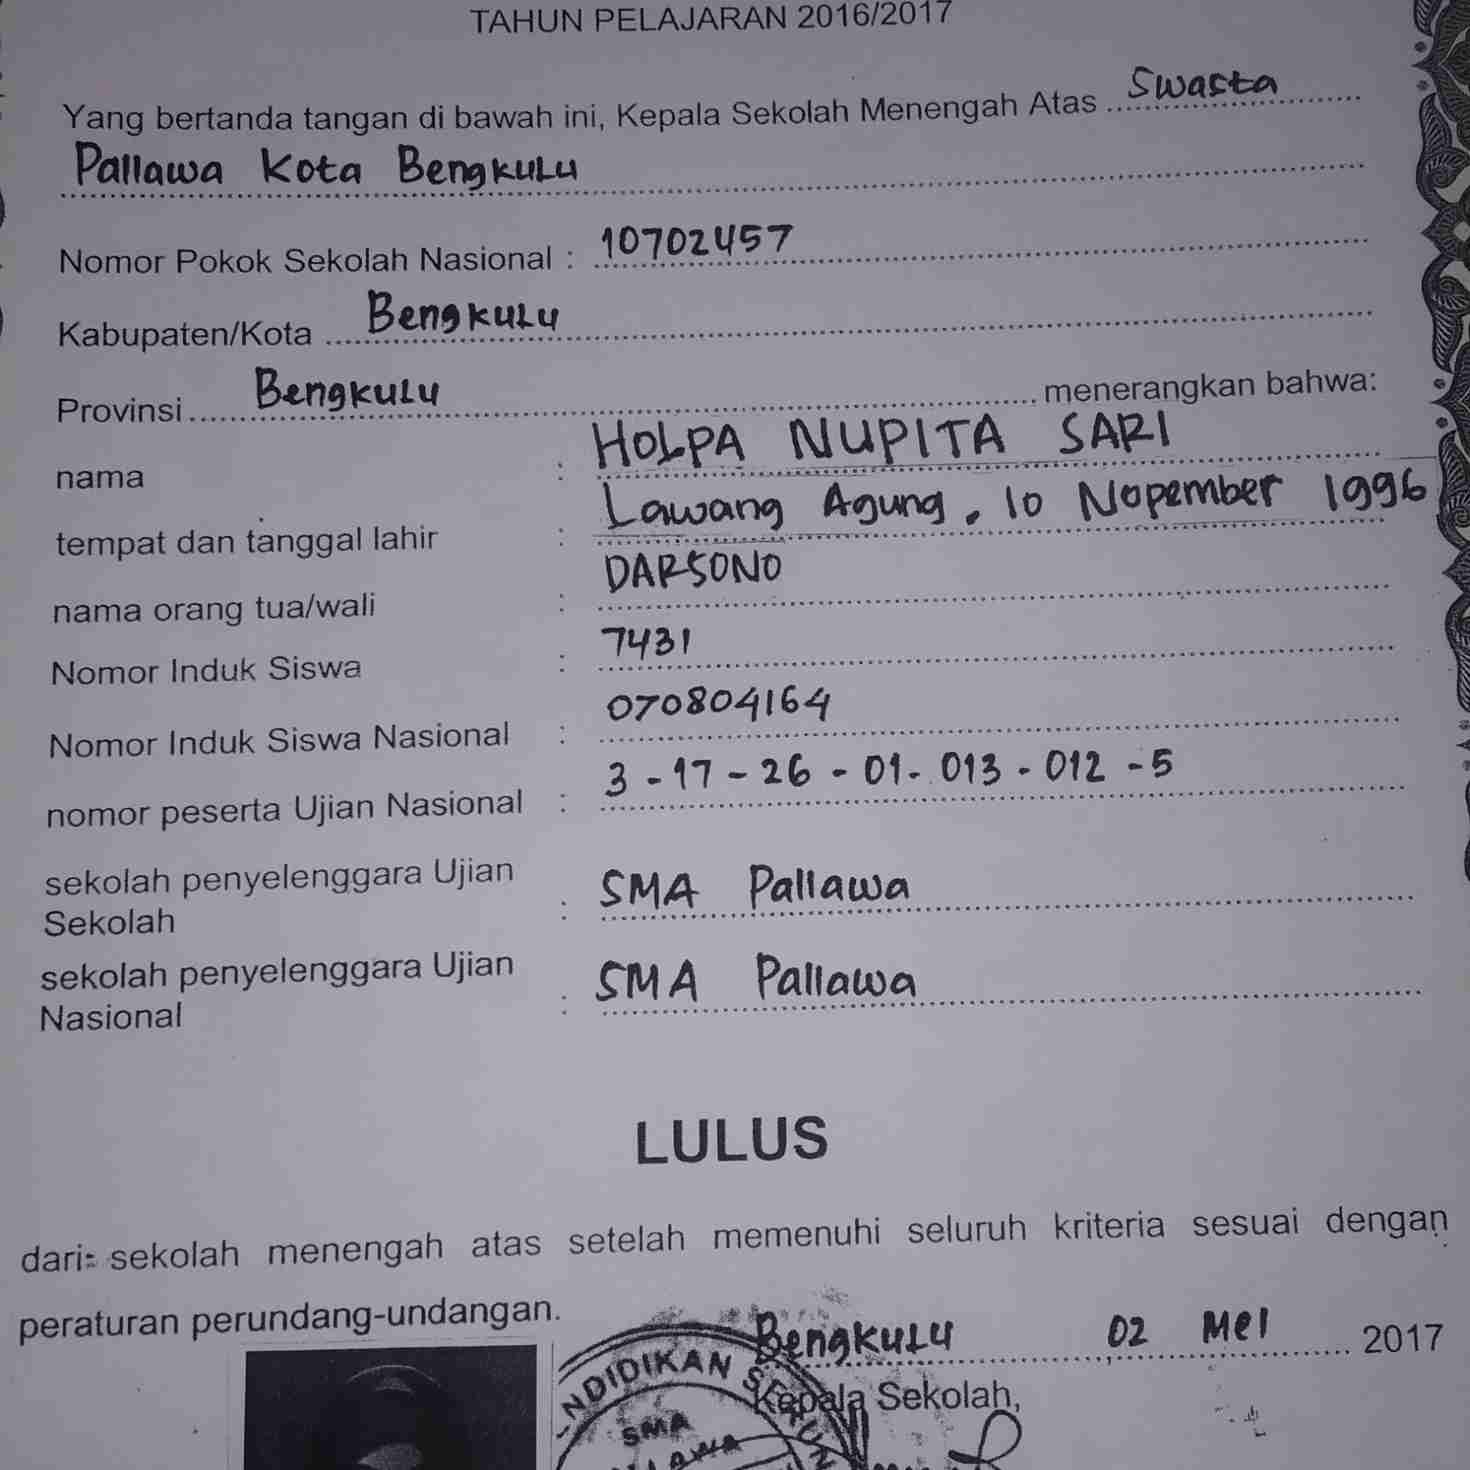 TAHUN PELAJARAN 2016/2017
Yang bertanda tangan di bawah ini, Kepala Sekolah Menengah Atas Swasta
Pallawa Kota Bengkulu
Nomor Pokok Sekolah Nasional : 10702457
Kabupaten/Kota Bengkulu
Provinsi Bengkulu menerangkan bahwa:
nama : HOLPA NUPITA SARI
tempat dan tanggal lahir : Lawang Agung, 10 Nopember 1996
nama orang tua/wali : DARSONO
Nomor Induk Siswa : 7431
Nomor Induk Siswa Nasional : 070804164
nomor peserta Ujian Nasional : 3-17-26-01-013-012-5
sekolah penyelenggara Ujian
Sekolah : SMA Pallawa
sekolah penyelenggara Ujian
Nasional : SMA Pallawa
LULUS
dari sekolah menengah atas setelah memenuhi seluruh kriteria sesuai dengan
peraturan perundang-undangan.
Bengkulu 02 Mei 2017
Kepala Sekolah,
SMA